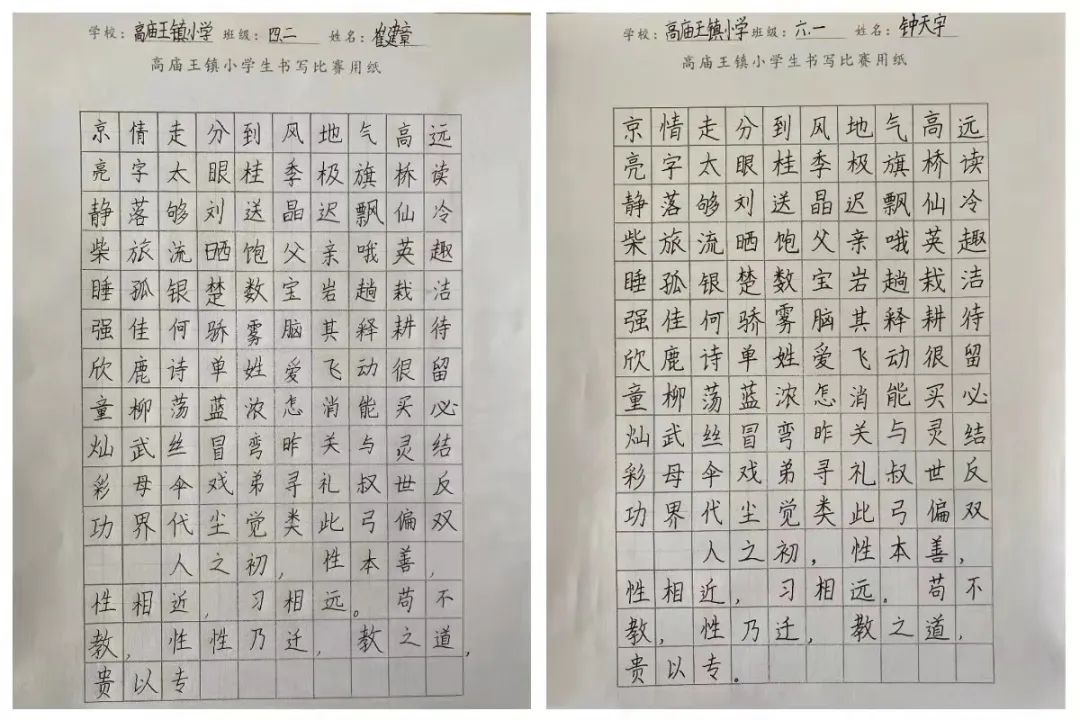 学校：高庙王镇小学 班级：四.二 姓名：崔建章
高庙王镇小学生书写比赛用纸
京情走分到风地气高远
亮字太眼桂季极旗桥读
静落够刘送晶迟飘仙冷
柴旅流晒饱父亲哦英趣
睡孤银楚数宝岩趟栽洁
强佳何骄雾脑其释耕待
欣鹿诗单姓爱飞动很留
童柳荡蓝浓怎消能买必
灿武丝冒弯昨关与灵结
彩母伞戏弟寻礼叔世反
功界代尘觉类此弓偏双
人之初，性本善，
性相近，习相远。苟不
教，性性乃迁，教之道，
贵以专
学校：高庙王镇小学 班级：六.一 姓名：钟天宇
高庙王镇小学生书写比赛用纸
京情走分到风地气高远
亮字太眼桂季极旗桥读
静落够刘送晶迟飘仙冷
柴旅流晒饱父亲哦英趣
睡孤银楚数宝岩趟栽洁
强佳何骄雾脑其释耕待
欣鹿诗单姓爱飞动很留
童柳荡蓝浓怎消能买必
灿武丝冒弯昨关与灵结
彩母伞戏弟寻礼叔世反
功界代尘觉类此弓偏双
人之初，性本善，
性相近，习相远。苟不
教，性乃迁，教之道，
贵以专。